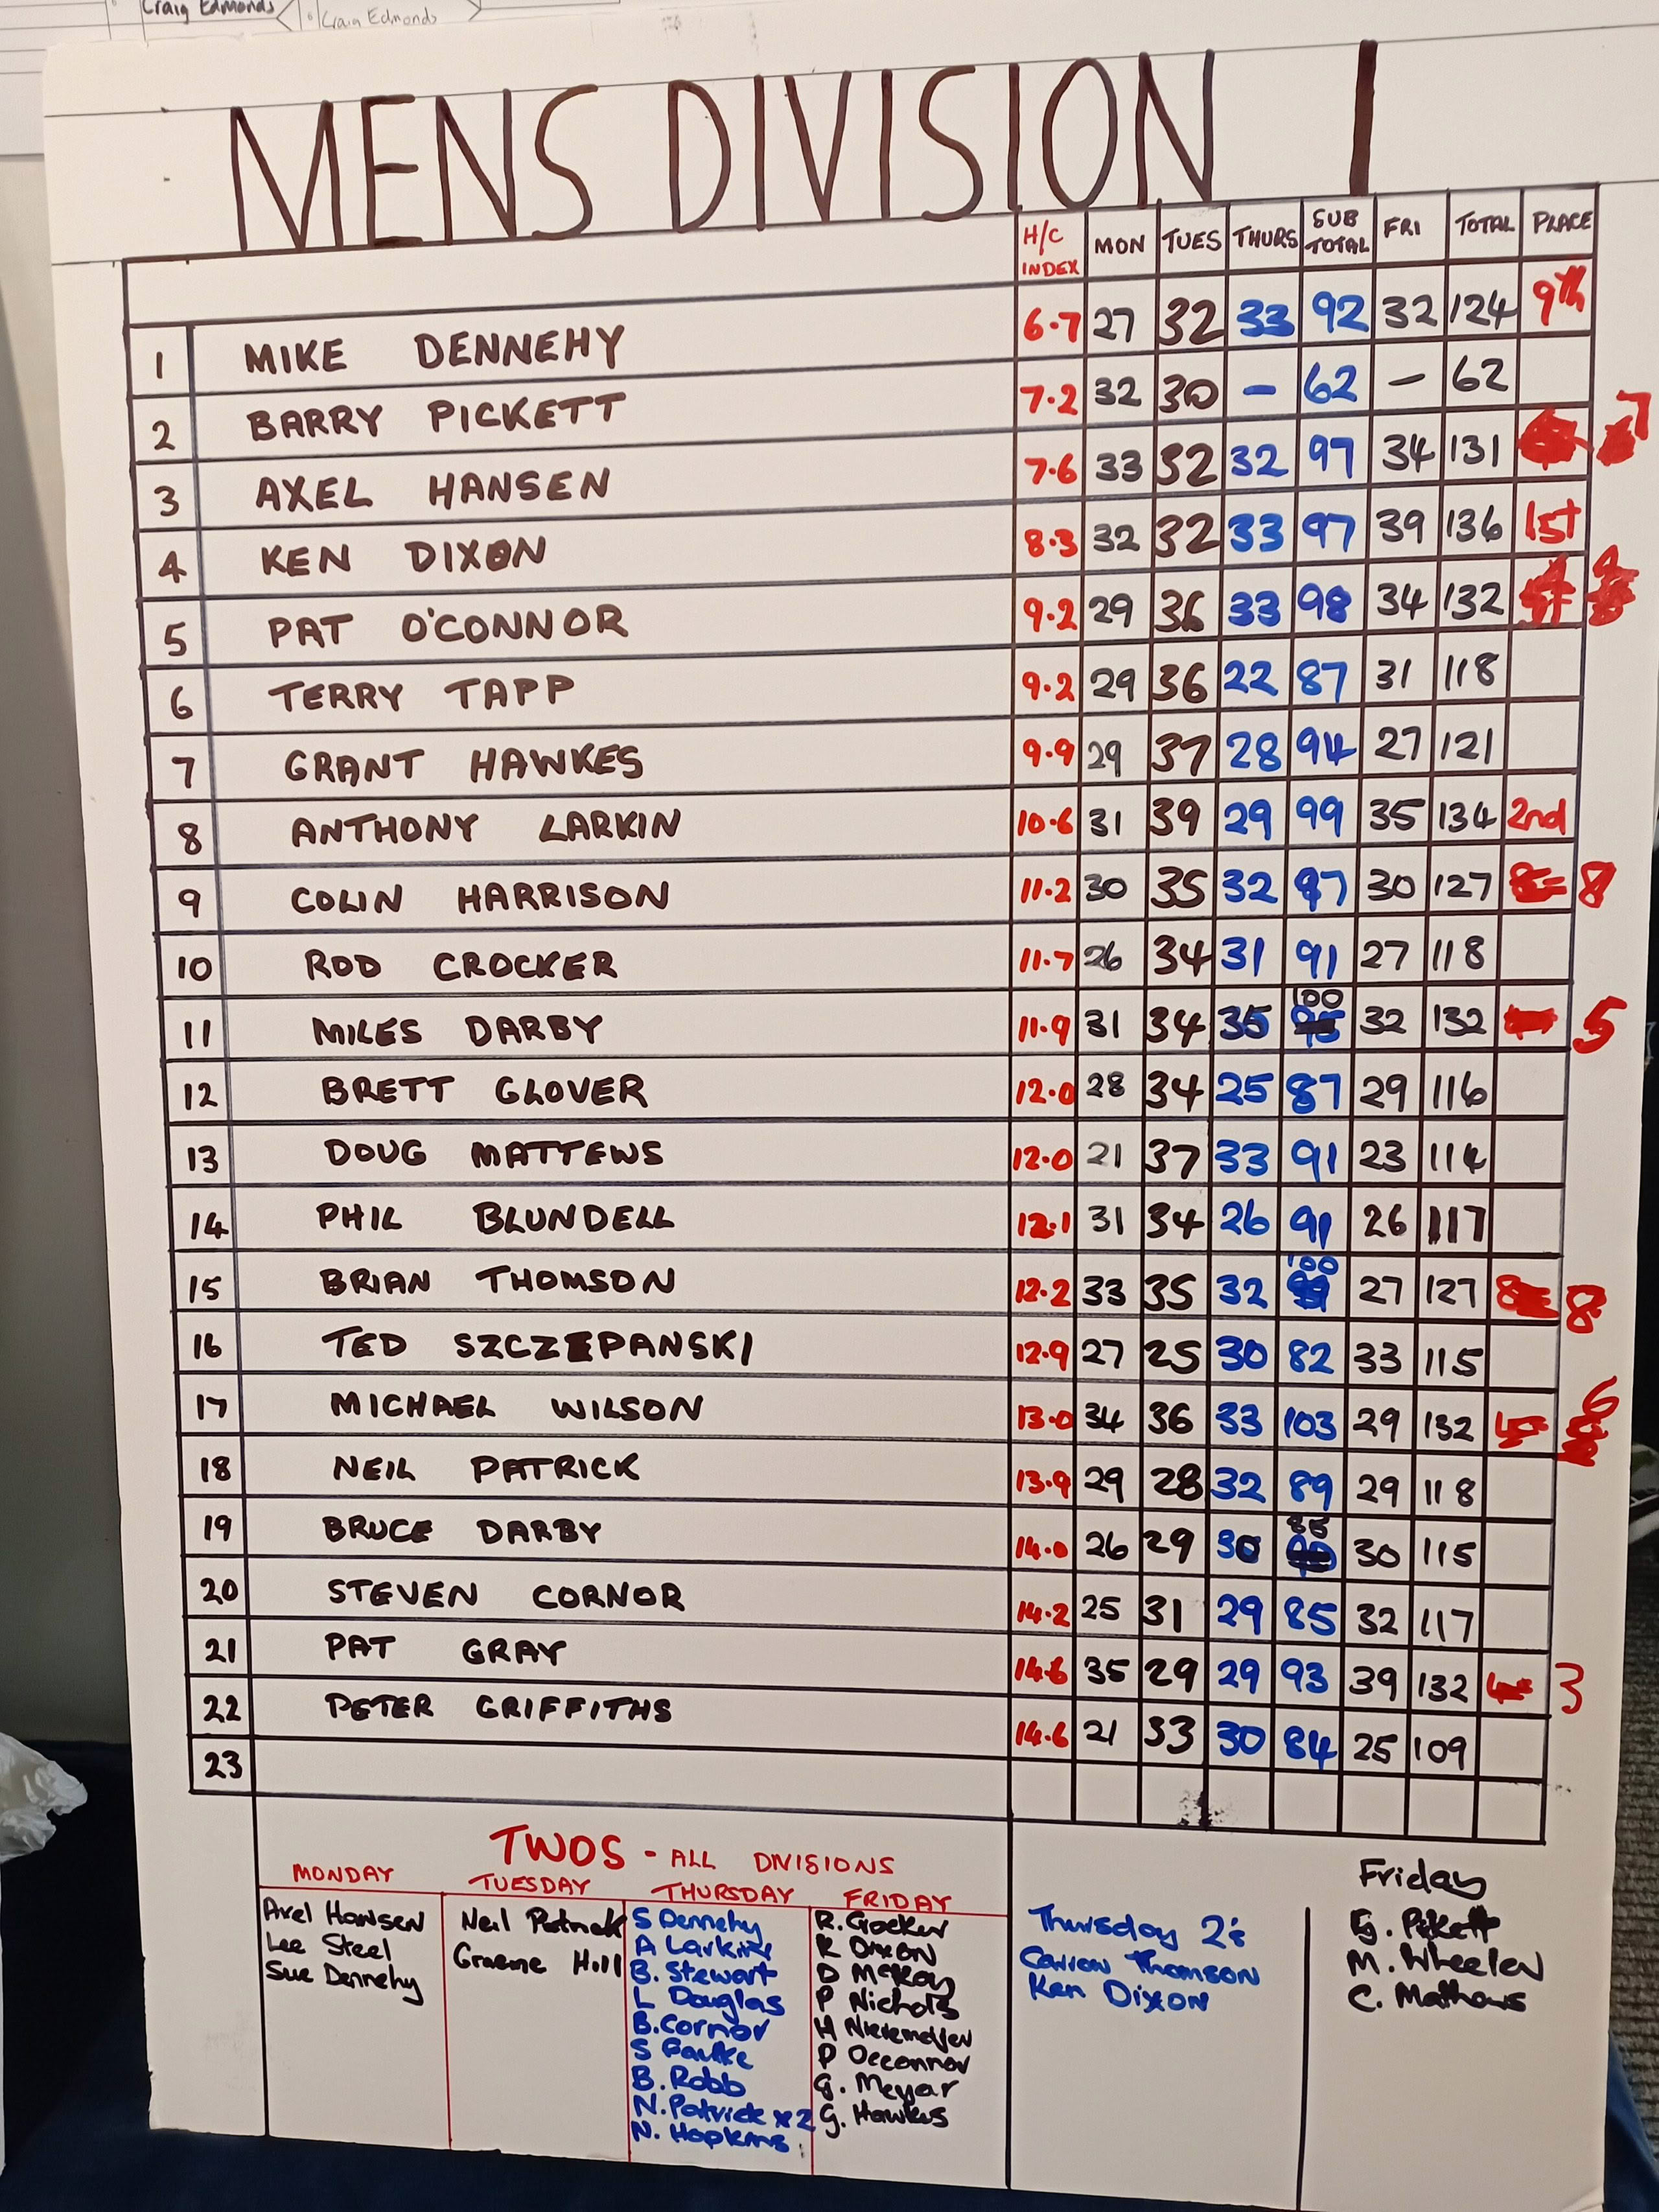 Craig Edmonds
Craig Edmonds
MENS DIVISION 1
H/C INDEX MON TUES THURS SUB TOTAL FRI TOTAL PLACE
1 MIKE DENNEHY 6.7 27 32 33 92 32 124 9th
2 BARRY PICKETT 7.2 32 30 - 62 - 62
3 AXEL HANSEN 7.6 33 32 32 97 34 131 7
4 KEN DIXON 8.3 32 32 33 97 39 136 1st
5 PAT O'CONNOR 9.2 29 36 33 98 34 132 4
6 TERRY TAPP 9.2 29 36 22 87 31 118
7 GRANT HAWKES 9.9 29 37 28 94 27 121
8 ANTHONY LARKIN 10.6 31 39 29 99 35 134 2nd
9 COLIN HARRISON 11.2 30 35 32 97 30 127 8
10 ROD CROCKER 11.7 26 34 31 91 27 118
11 MILES DARBY 11.9 31 34 35 100 32 132 5
12 BRETT GLOVER 12.0 28 34 25 87 29 116
13 DOUG MATTEWS 12.0 21 37 33 91 23 114
14 PHIL BLUNDELL 12.1 31 34 26 91 26 117
15 BRIAN THOMSON 12.2 33 35 32 100 27 127 8
16 TED SZCZEPANSKI 12.9 27 25 30 82 33 115
17 MICHAEL WILSON 13.0 34 36 33 103 29 132 6
18 NEIL PATRICK 13.9 29 28 32 89 29 118
19 BRUCE DARBY 14.0 26 29 30 85 30 115
20 STEVEN CORNOR 14.2 25 31 29 85 32 117
21 PAT GRAY 14.6 35 29 29 93 39 132 3
22 PETER GRIFFITHS 14.6 21 33 30 84 25 109
23
TWOS - ALL DIVISIONS
MONDAY
Axel Hansen
Lee Steel
Sue Dennehy
TUESDAY
Neil Patrick
Graeme Hill
THURSDAY
S Dennehy
A Larkin
B. Stewart
L Douglas
B. Cornor
S
B. Robb
N. Patrick x2
N. Hopkins
FRIDAY
R. Crocker
K Dixon
D McKay
P Nichols
H
P Oconnor
G. Meyar
G. Hawkes
Thursday 2's
Thomson
Ken Dixon
Friday
Pickett
M. Wheeler
C. Mathows